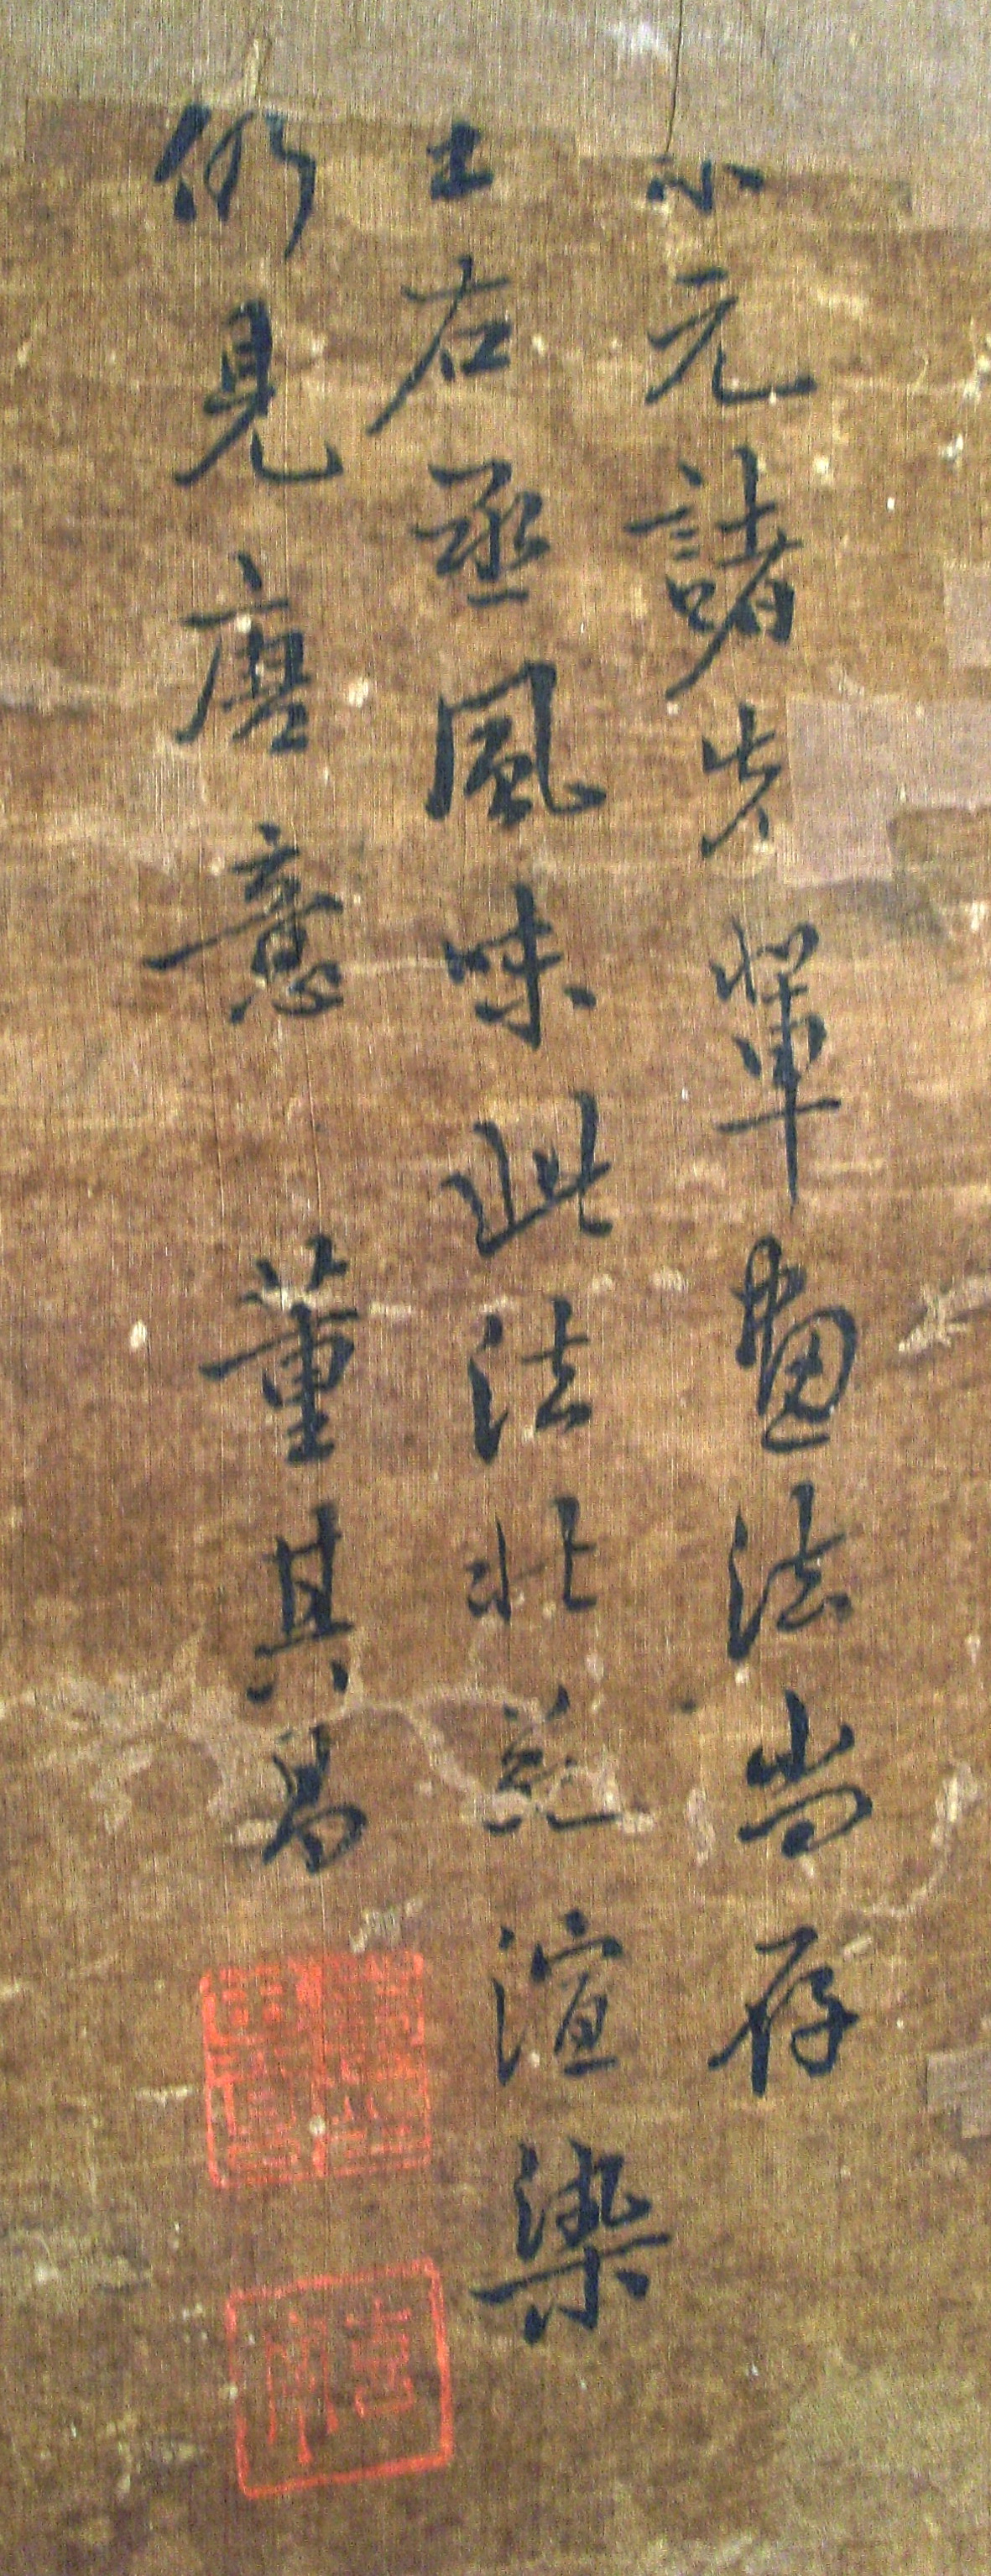 元諸先輩畫法尚存
王右丞風味此法北苑渲染
仍見唐意 董其昌